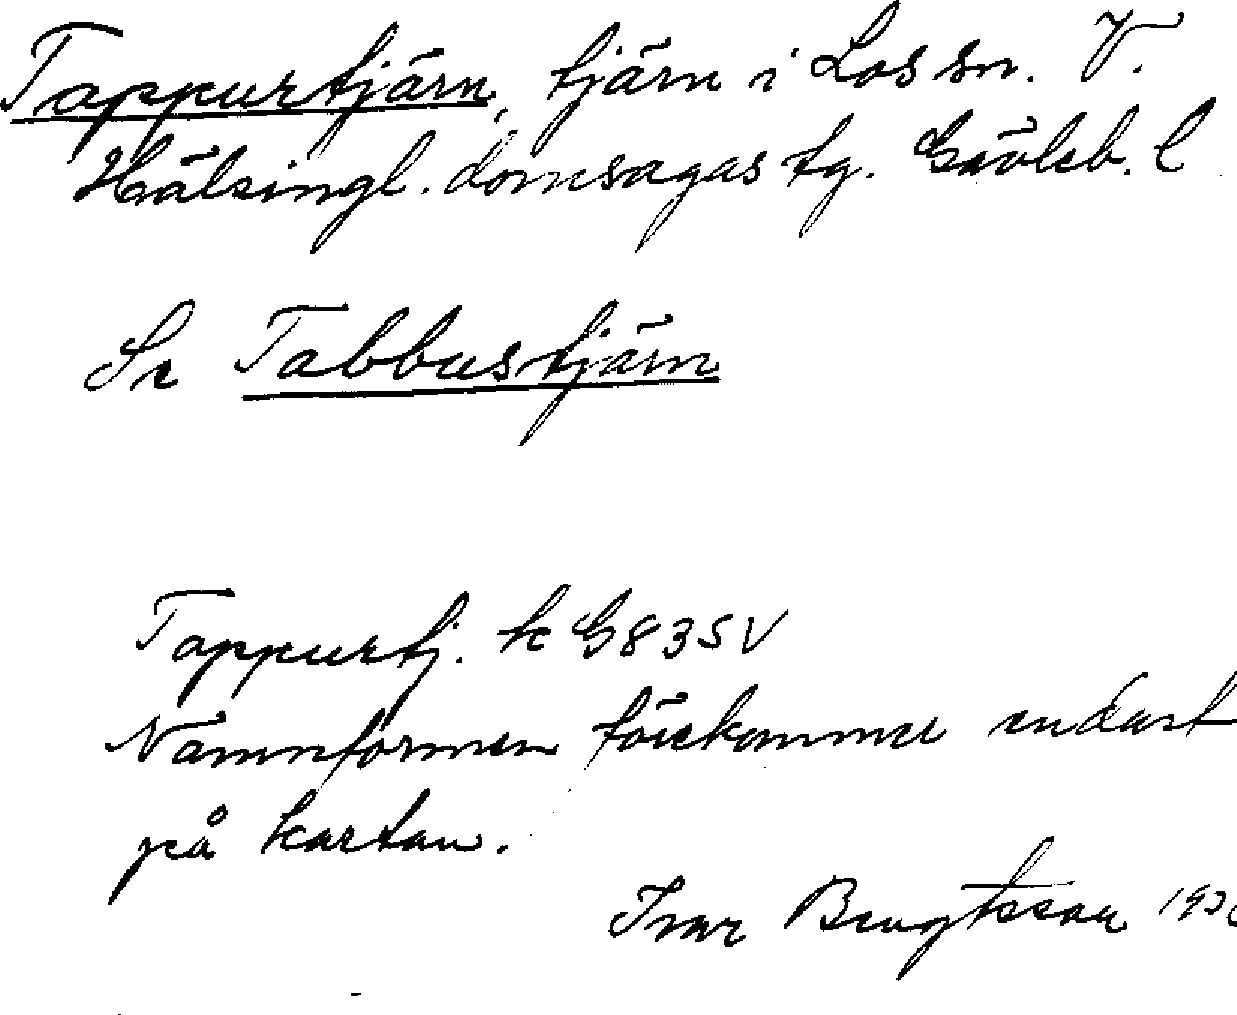 Tappurtjärn, tjärn i Los sn. V.
Hälsingl. domsagas tg. Gävleb. l
Se Tabbustjärn
Tappurtj. k G83SV
Namnformen förekommer endast
på kartan.
Ivar Bengtsson